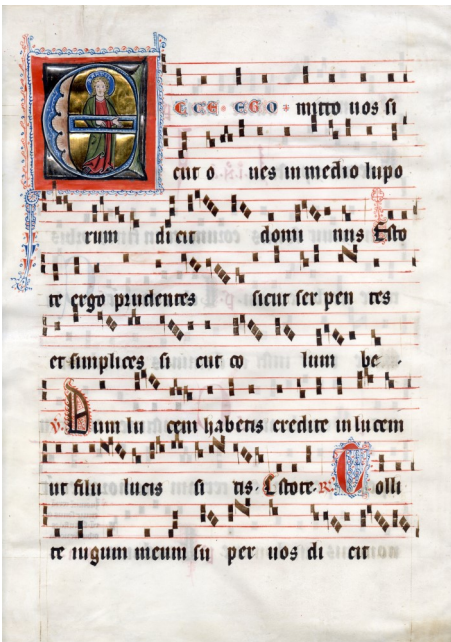 ECCE · EGO · mitto uos si
cut o ues in medio lupo
rum dicit domi nus Esto
te ergo prudentes sicut serpen tes
et simplices si cut co lum be ·
Dum lu cem habetis credite in lucem
ut filii lucis si tis · Estote · Tolli
te iugum meum su per uos di cit